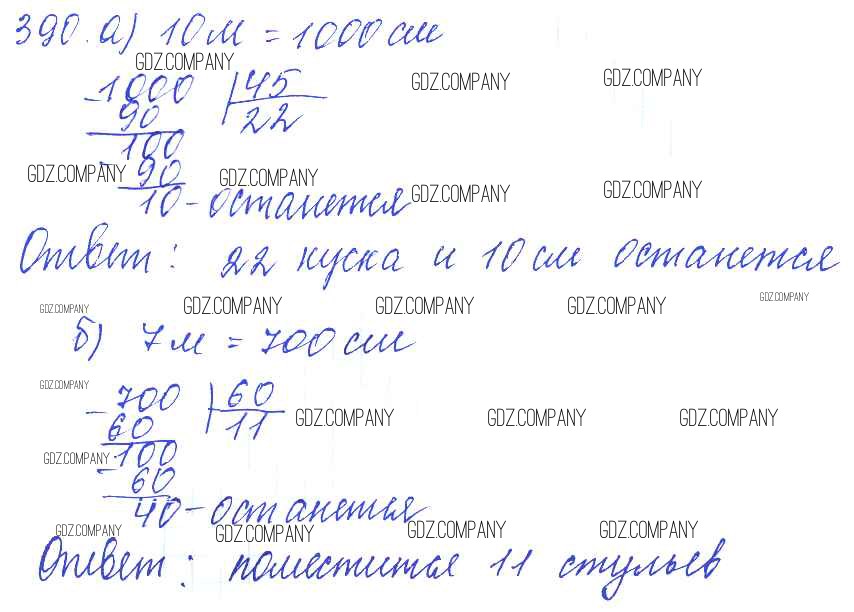 390. а) 10 м = 1000 см
GDZ.COMPANY
GDZ.COMPANY GDZ.COMPANY
- 1000 | 45
90 22
100
- 90
GDZ.COMPANY GDZ.COMPANY
GDZ.COMPANY GDZ.COMPANY
10 - останется
Ответ: 22 куска и 10 см останется
GDZ.COMPANY GDZ.COMPANY GDZ.COMPANY GDZ.COMPANY GDZ.COMPANY
б) 7 м = 700 см
GDZ.COMPANY
- 700 | 60
60 11
GDZ.COMPANY GDZ.COMPANY GDZ.COMPANY
GDZ.COMPANY
- 100
60
40 - останется
GDZ.COMPANY GDZ.COMPANY GDZ.COMPANY GDZ.COMPANY
Ответ: поместится 11 стульев